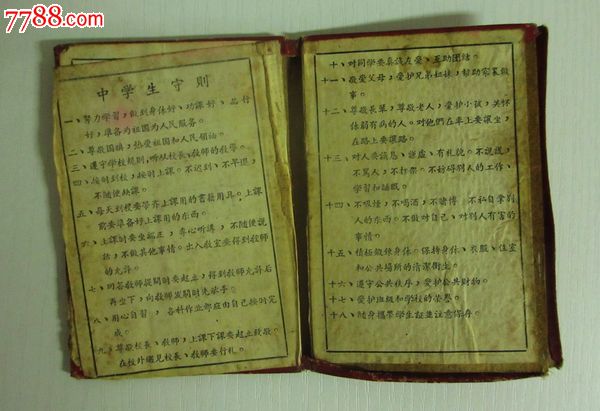 7788.com
中学生守則
一、努力学習，做到身体好、功課好、品行
好，準备为祖国为人民服务。
二、尊敬国旗，热爱祖国和人民領袖。
三、遵守学校規則，听从校長、教師的教學。
四、按时到校，按时上課。不迟到、不早退，
不随便缺課。
五、每天到校要帶齐上課用的書籍用具。上課
前要準备好上課用的东西。
六、上課时要坐端正，专心听講，不随便說
話，不做其他事情。出入教室要得到教師
的允許。
七、回答教師提問时要起立，得到教師允許后
再坐下，向教師發問时先举手。
八、用心自習，各种作业都应由自己按时完
成。
九、尊敬校長、教師，上課下課要起立致敬，
在校外遇見校長、教師要行礼。
十、对同学要真誠友爱、互助团結。
十一、敬爱父母，爱护兄弟姐妹，帮助家裏做
事。
十二、尊敬長輩，尊敬老人，爱护小孩，关怀
体弱有病的人。对他們在車上要讓坐，
在路上要讓路。
十三、对人要誠恳、謙虛、有礼貌。不說謊，
不罵人，不打架。不妨碍別人的工作、
学習和睡眠。
十四、不吸烟，不喝酒，不賭博，不私自拿別
人的东西。不做对自己、对別人有害的
事情。
十五、積極鍛鍊身体。保持身体、衣服、住室
和公共場所的清潔衛生。
十六、遵守公共秩序，爱护公共財物。
十七、爱护班級和学校的荣誉。
十八、随身攜帶学生証並注意保存。